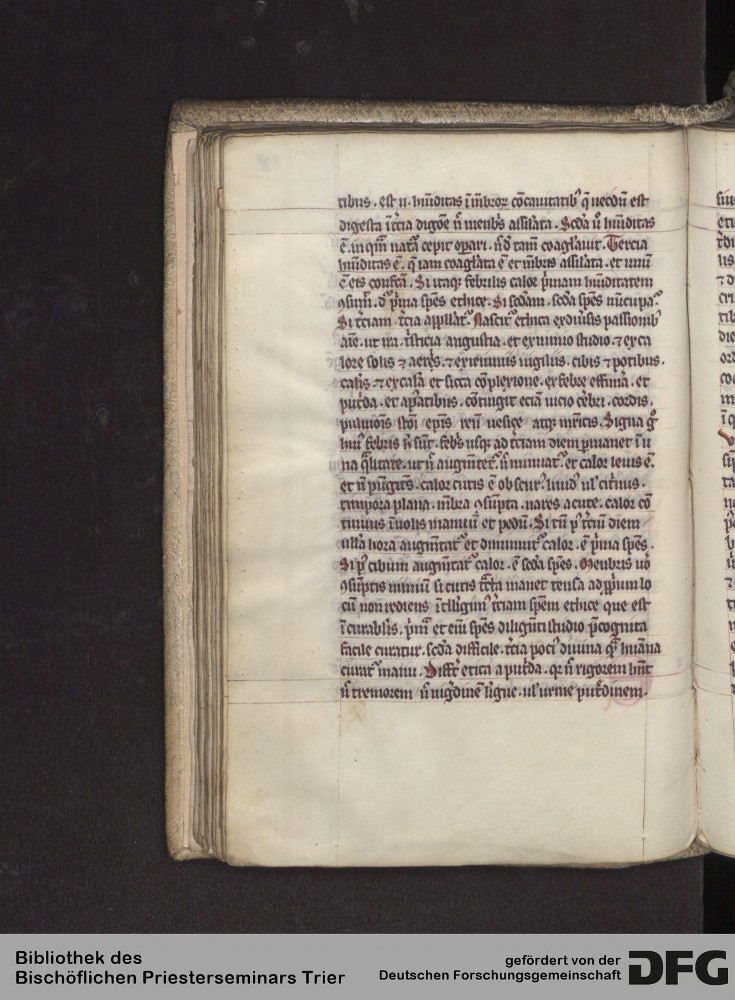 tibus . est .n. hūiditas ī mēbroꝝ cōcauitatib' q̄ necdū est
digesta ī t̄cia digōe n̄ mēbris assilata . Scd̄a ū hūiditas
ē . in qm̄ nat̄a cepit op̄ari . s; tam̄ coagl̄auit . Tercia
hūiditas ē . q̄ iam coagl̄ata ē et mēbris assilata . et unū
ē eis confc̄a . Si itaq; febrilis calor p̄mam hūiditatem
ꝯsum̄ . d'r p̄ma spēs ethice . Si scd̄am . scd̄a spēs nūcupat'
Si t̄ciam . t̄cia appllat' . Nascit' ethica ex diūsis passionib'
aīe . ut ira . t̄sticia angustia . et ex nimio studio . ⁊ ex ca
lore solis ⁊ aeris . ⁊ ex nimiis uigiliis . cibis ⁊ potibus .
cal'is . ⁊ ex cal'a et sicca cōplexione . ex febre effim̄a . et
put'da . et ap̄atibus . cōtingit eciā uicio c̄ebri . cordis .
pulmōis stōī epīs renū uesice atq; mr̄icis . Signa g°
hui' febris h̄ sūt . feb's usq; ad t̄ciam diem p̄manet ī u
na q̄litate . ut n̄ augmēter' . n̄ minuat' . et calor leuis ē .
et n̄ pūgit's . calor cutis ē obscur' . liuid' ul' cit'nus .
timpora plana . mēbra ꝯsūpta . nares acute . calor cō
tinuus ī uolis manuū et pedū . Si tn̄ p' t̄ciū diem
ulla hora augm̄tat' et diminuit' calor . ē p̄ma spēs .
Si p' cibum augm̄tat' calor . ē scd̄a spēs . Menbris uō
ꝯsūptis nimiū si cutis t̄cta manet tensa ad pp̄um lo
cū non rediens ītlligim' t̄ciam spēm ethice que est
ī curabl'is . p̄m̄ et enī spēs diligūti studio p̄cognita
facile curatur . scd̄a difficile . t̄cia poci' diuina q̄ hūana
curat' manu . Differt etica a put'da . qr n̄ rigorem hn̄t
n̄ tremorem n̄ nig'dinē ligue . ul' urine put'dinem .
Bibliothek des
Bischöflichen Priesterseminars Trier
gefördert von der
Deutschen Forschungsgemeinschaft
DFG